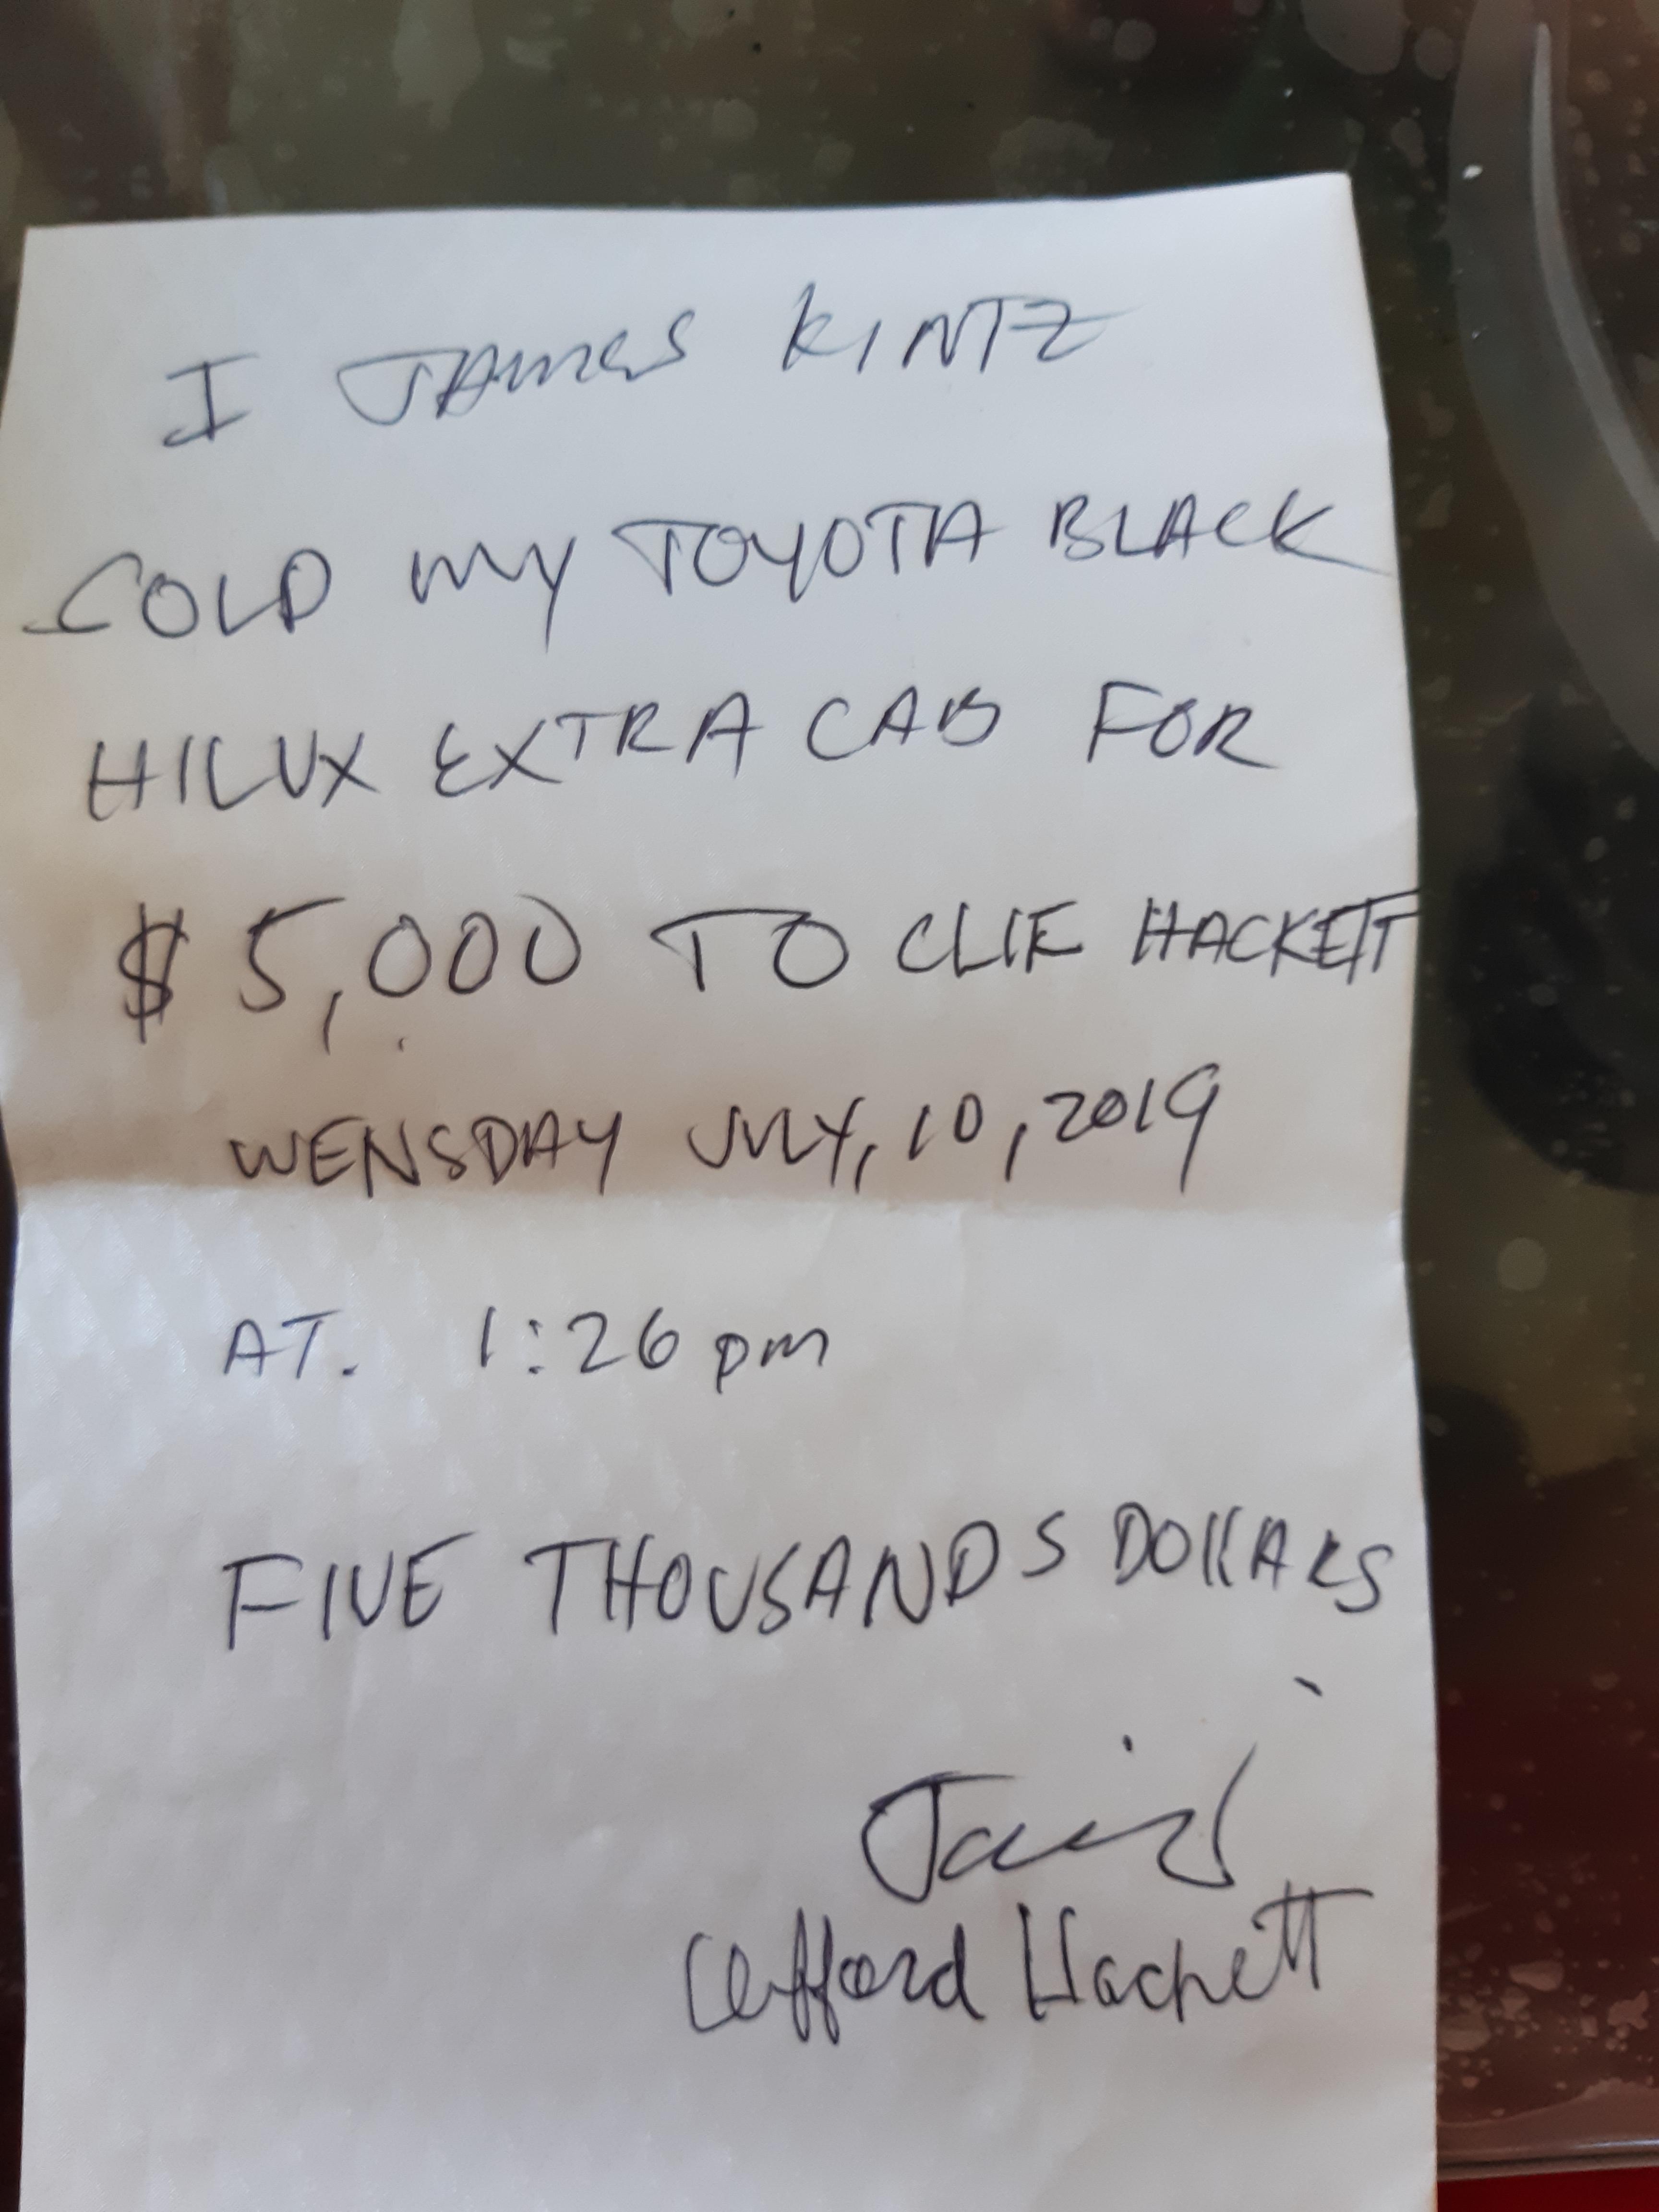 I JAMES KINTZ
SOLD MY TOYOTA BLACK
HILUX EXTRA CAB FOR
$ 5,000 TO CLIF HACKETT
WENSDAY JULY, 10, 2019
AT. 1:26 pm
FIVE THOUSANDS DOllARS
Clifford Hackett